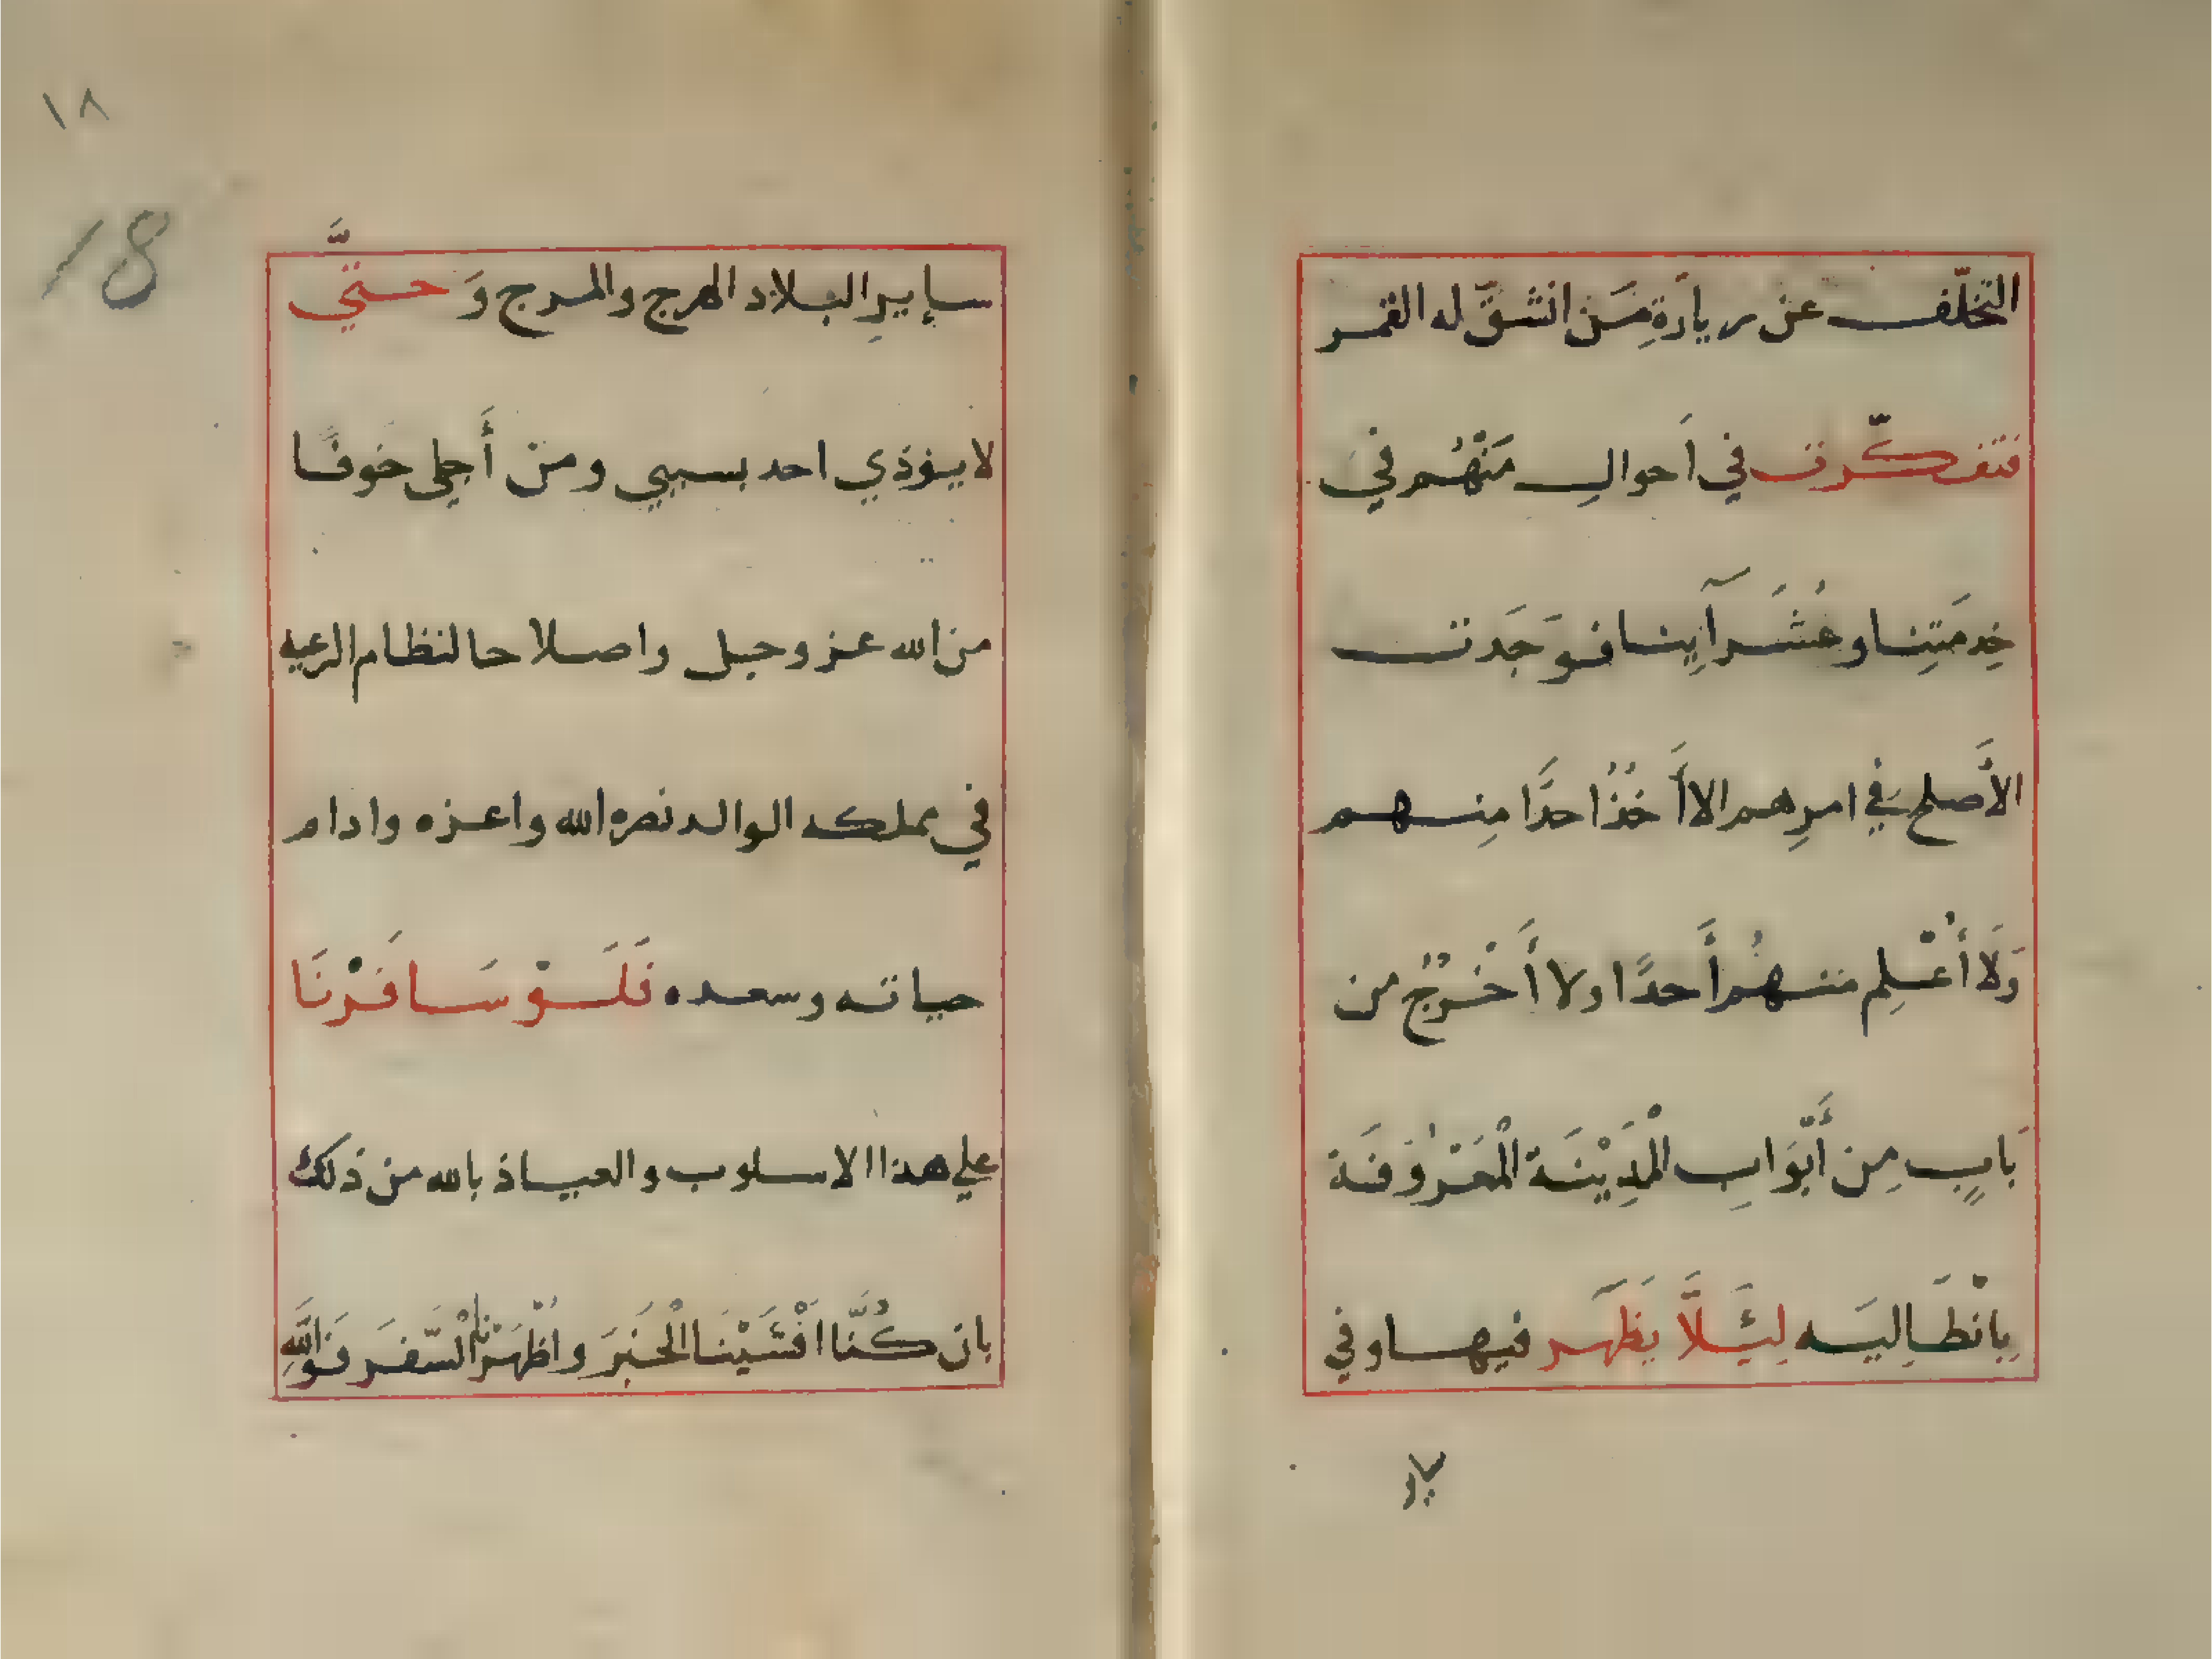 التخلّف عن زيارة مَن انشقّ له القمر
فتفكّرت في اَحوالِ مَنْهُم في
خِدمَتِنا وعُشَرآيِنا فوَجَدت
الأَصلح في امرِهم الا أَخُذُ احدًا منهم
وَلَا أُعْلِم منهُم أَحدًا ولا أَخْرُجُ من
بَابٍ مِن أَبْوَابِ الْمَدِيْنَة الْمَعْرُوْفَة
بِانْطَالِيَه لِئَلَّا يَظهَر فيها وفي
ساير
١٨
18
سإيرِ البلاد الهرج والمرج وَحتَّي
لا يوذي احد بسببي ومن أَجلي خوفًا
من الله عز وجل واصلاحا لنظام الرعيه
في مملكه الوالد نصره الله واعزه وادام
حياته وسعده فَلَوْ سَافَرْنَا
علي هذا الاسلوب والعياذ بالله من ذلك
بان كُنَّا اَفْشَيْنَا الْخَبَرَ واظْهَرْنا الْسَّفَرَ فَوَاللَّهِ